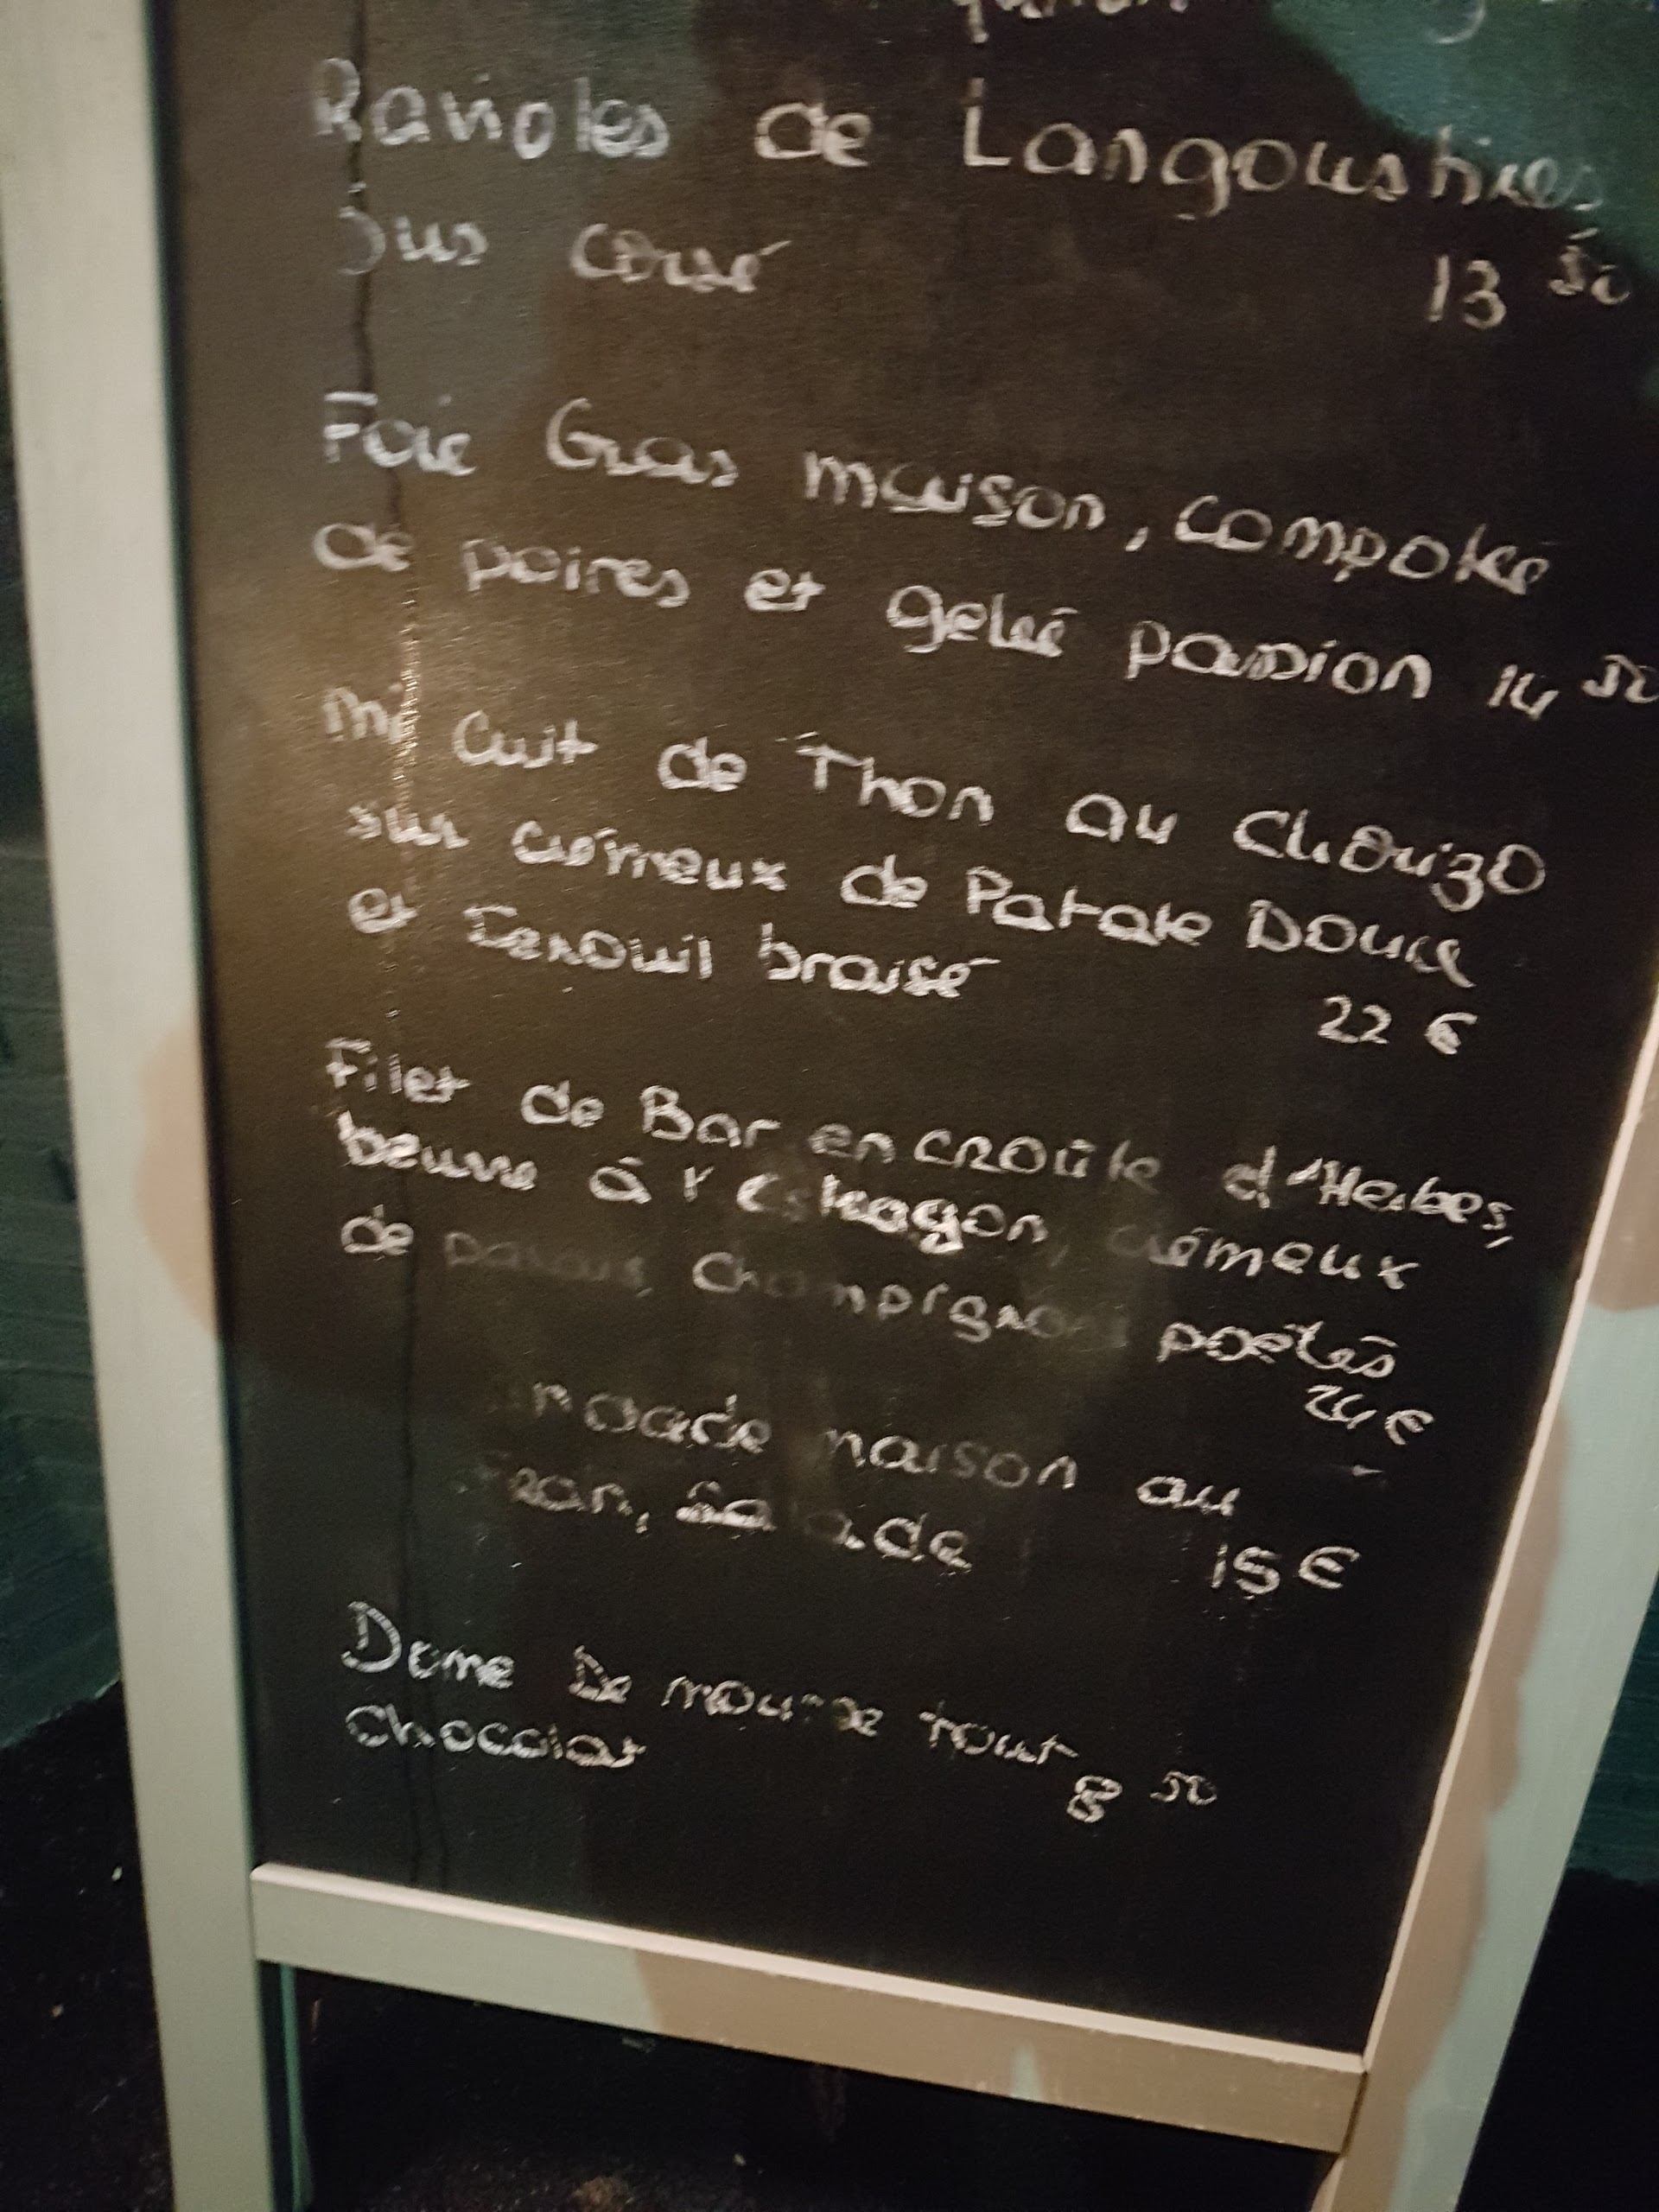 Ravioles de Langoustines
Jus corsé 13 50
Foie Gras maison, compotée
de poires et gelée passion 14 50
Mi Cuit de Thon au Chorizo
sur crémeux de Patate Douce
et Fenouil braisé
22 €
Filet de Bar en croûte d'Herbes,
beurre à l'Estragon, crémeux
de panais, Champignons poêlés
24 €
maison au
Salade 15 €
Dome De mousse tout
Chocolat 8 50